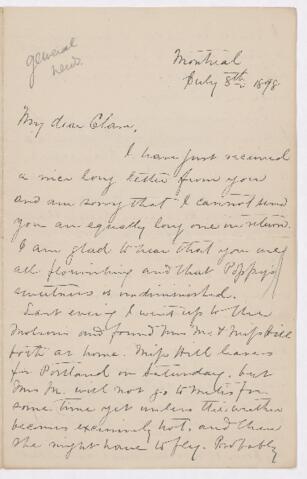 general
news
Montreal
July 8th 1898
My dear Clare,
I have just received
a nice long letter from you
and am sorry that I cannot send
you an equally long one in return.
I am glad to hear that you are
all flourishing and that Poppy's
sweetness is undiminished.
Last evening I went up to the
Molsons and found Mrs M. & Miss Hill
both at home. Miss Hill leaves
for Portland on Saturday. but
Mrs M. will not go to Metis for
some time yet unless the weather
becomes excessively hot, and then
she might have to fly. Probably